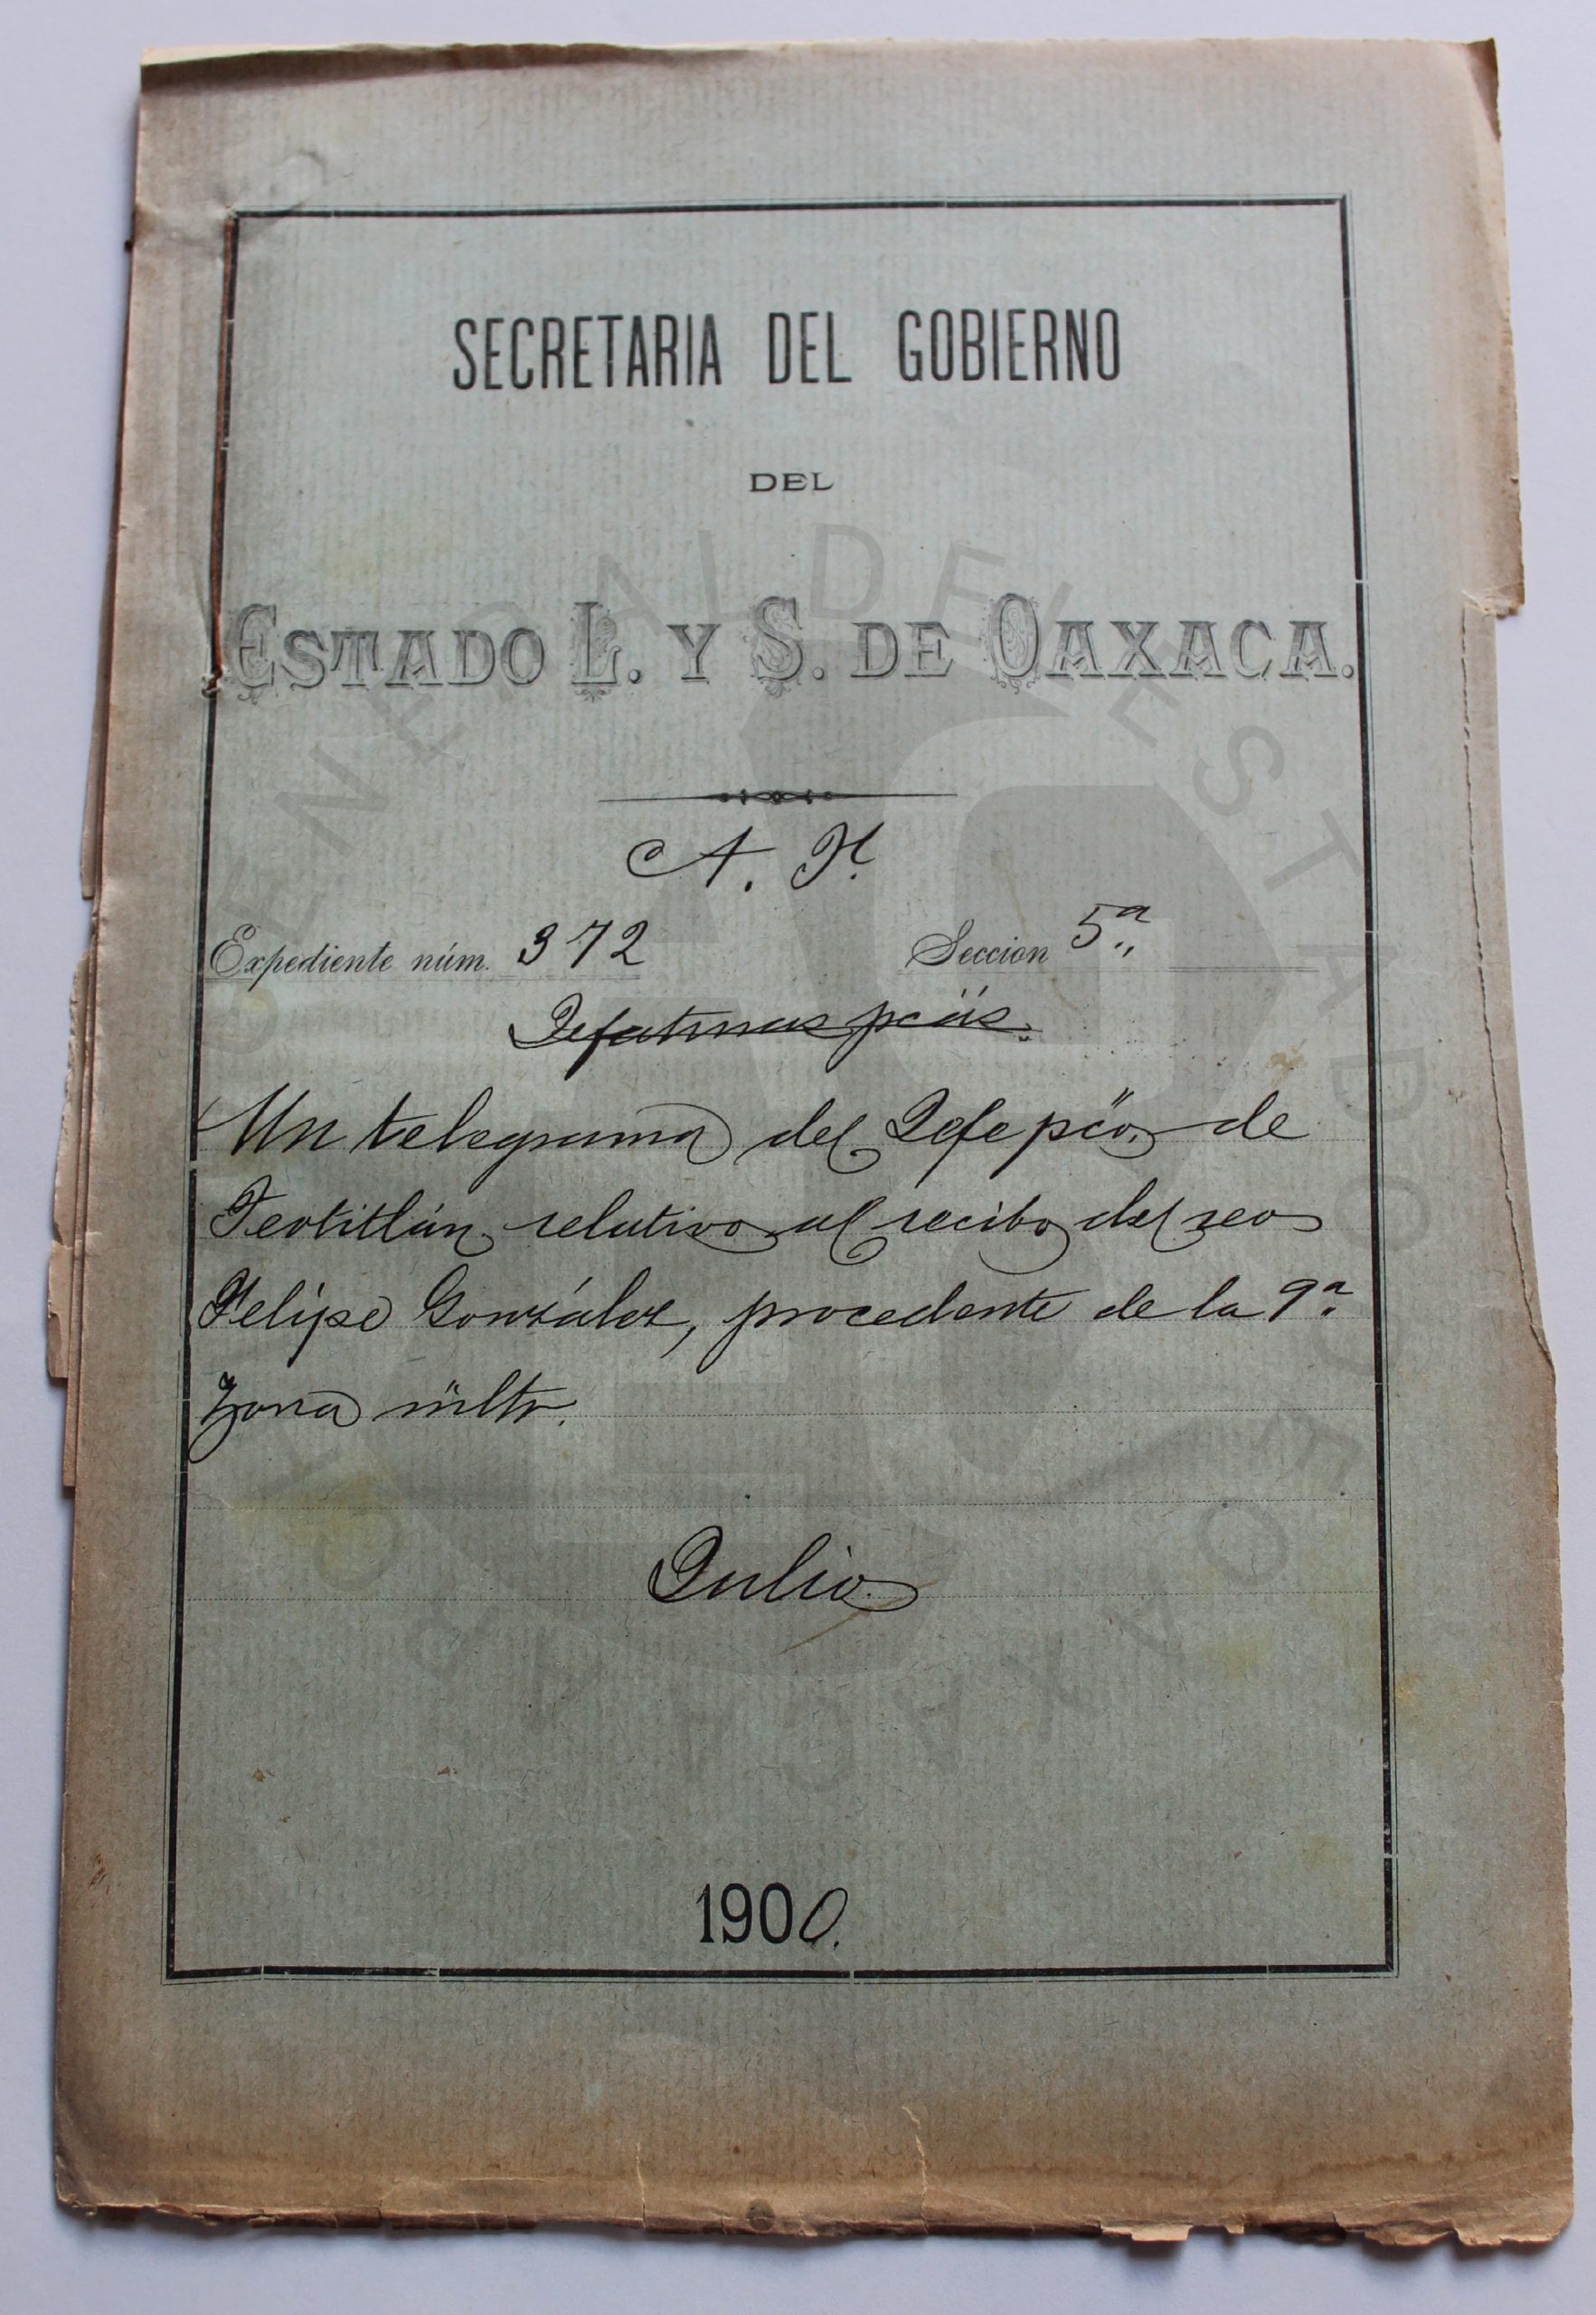 SECRETARIA DEL GOBIERNO
DEL
ESTADO L. Y S. DE OAXACA.
A. H.
Expediente núm. 372 Seccion 5ª
Jefaturas pcäs.
Un telegrama del Jefe pcö, de
Teotitlán, relativo al recibo del reo
Felipe González, procedente de la 9ª
Zona miltr.
Julio.
1900.
GENERAL DEL ESTADO DE OAXACA